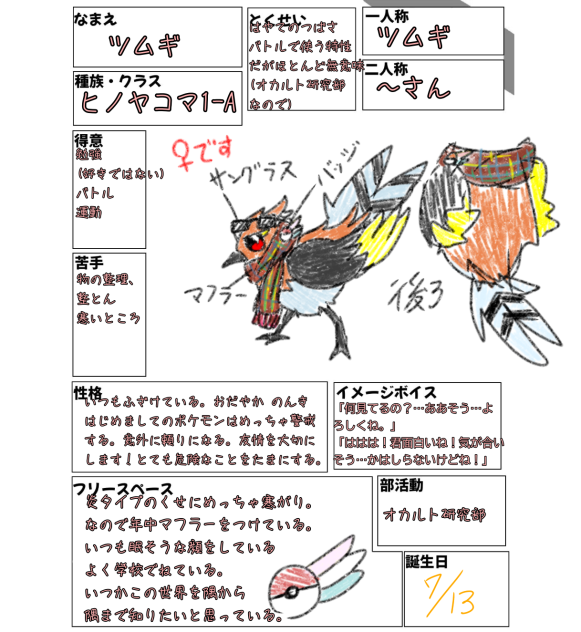 なまえ
ツムギ
種族・クラス
ヒノヤコマ1-A
とくせい
はやてのつばさ
バトルで使う特性
だがほとんど無意味
(オカルト研究部
なので)
一人称
ツムギ
二人称
〜さん
得意
勉強
(好きではない)
バトル
運動
苦手
物の整理、
整とん
寒いところ
♀です
サングラス
バッジ
マフラー
後ろ
性格
いつもふざけている。おだやか のんき
はじめましてのポケモンはめっちゃ警戒
する。意外に頼りになる。友情を大切に
します!とても危険なことをたまにする。
イメージボイス
「何見てるの?…ああそう…よ
ろしくね。」
「ははは!君面白いね!気が合い
そう…かはしらないけどね!」
フリースペース
炎タイプのくせにめっちゃ寒がり。
なので年中マフラーをつけている。
いつも眠そうな顔をしている
よく学校でねている。
いつかこの世界を隅から
隅まで知りたいと思っている。
部活動
オカルト研究部
誕生日
7/13